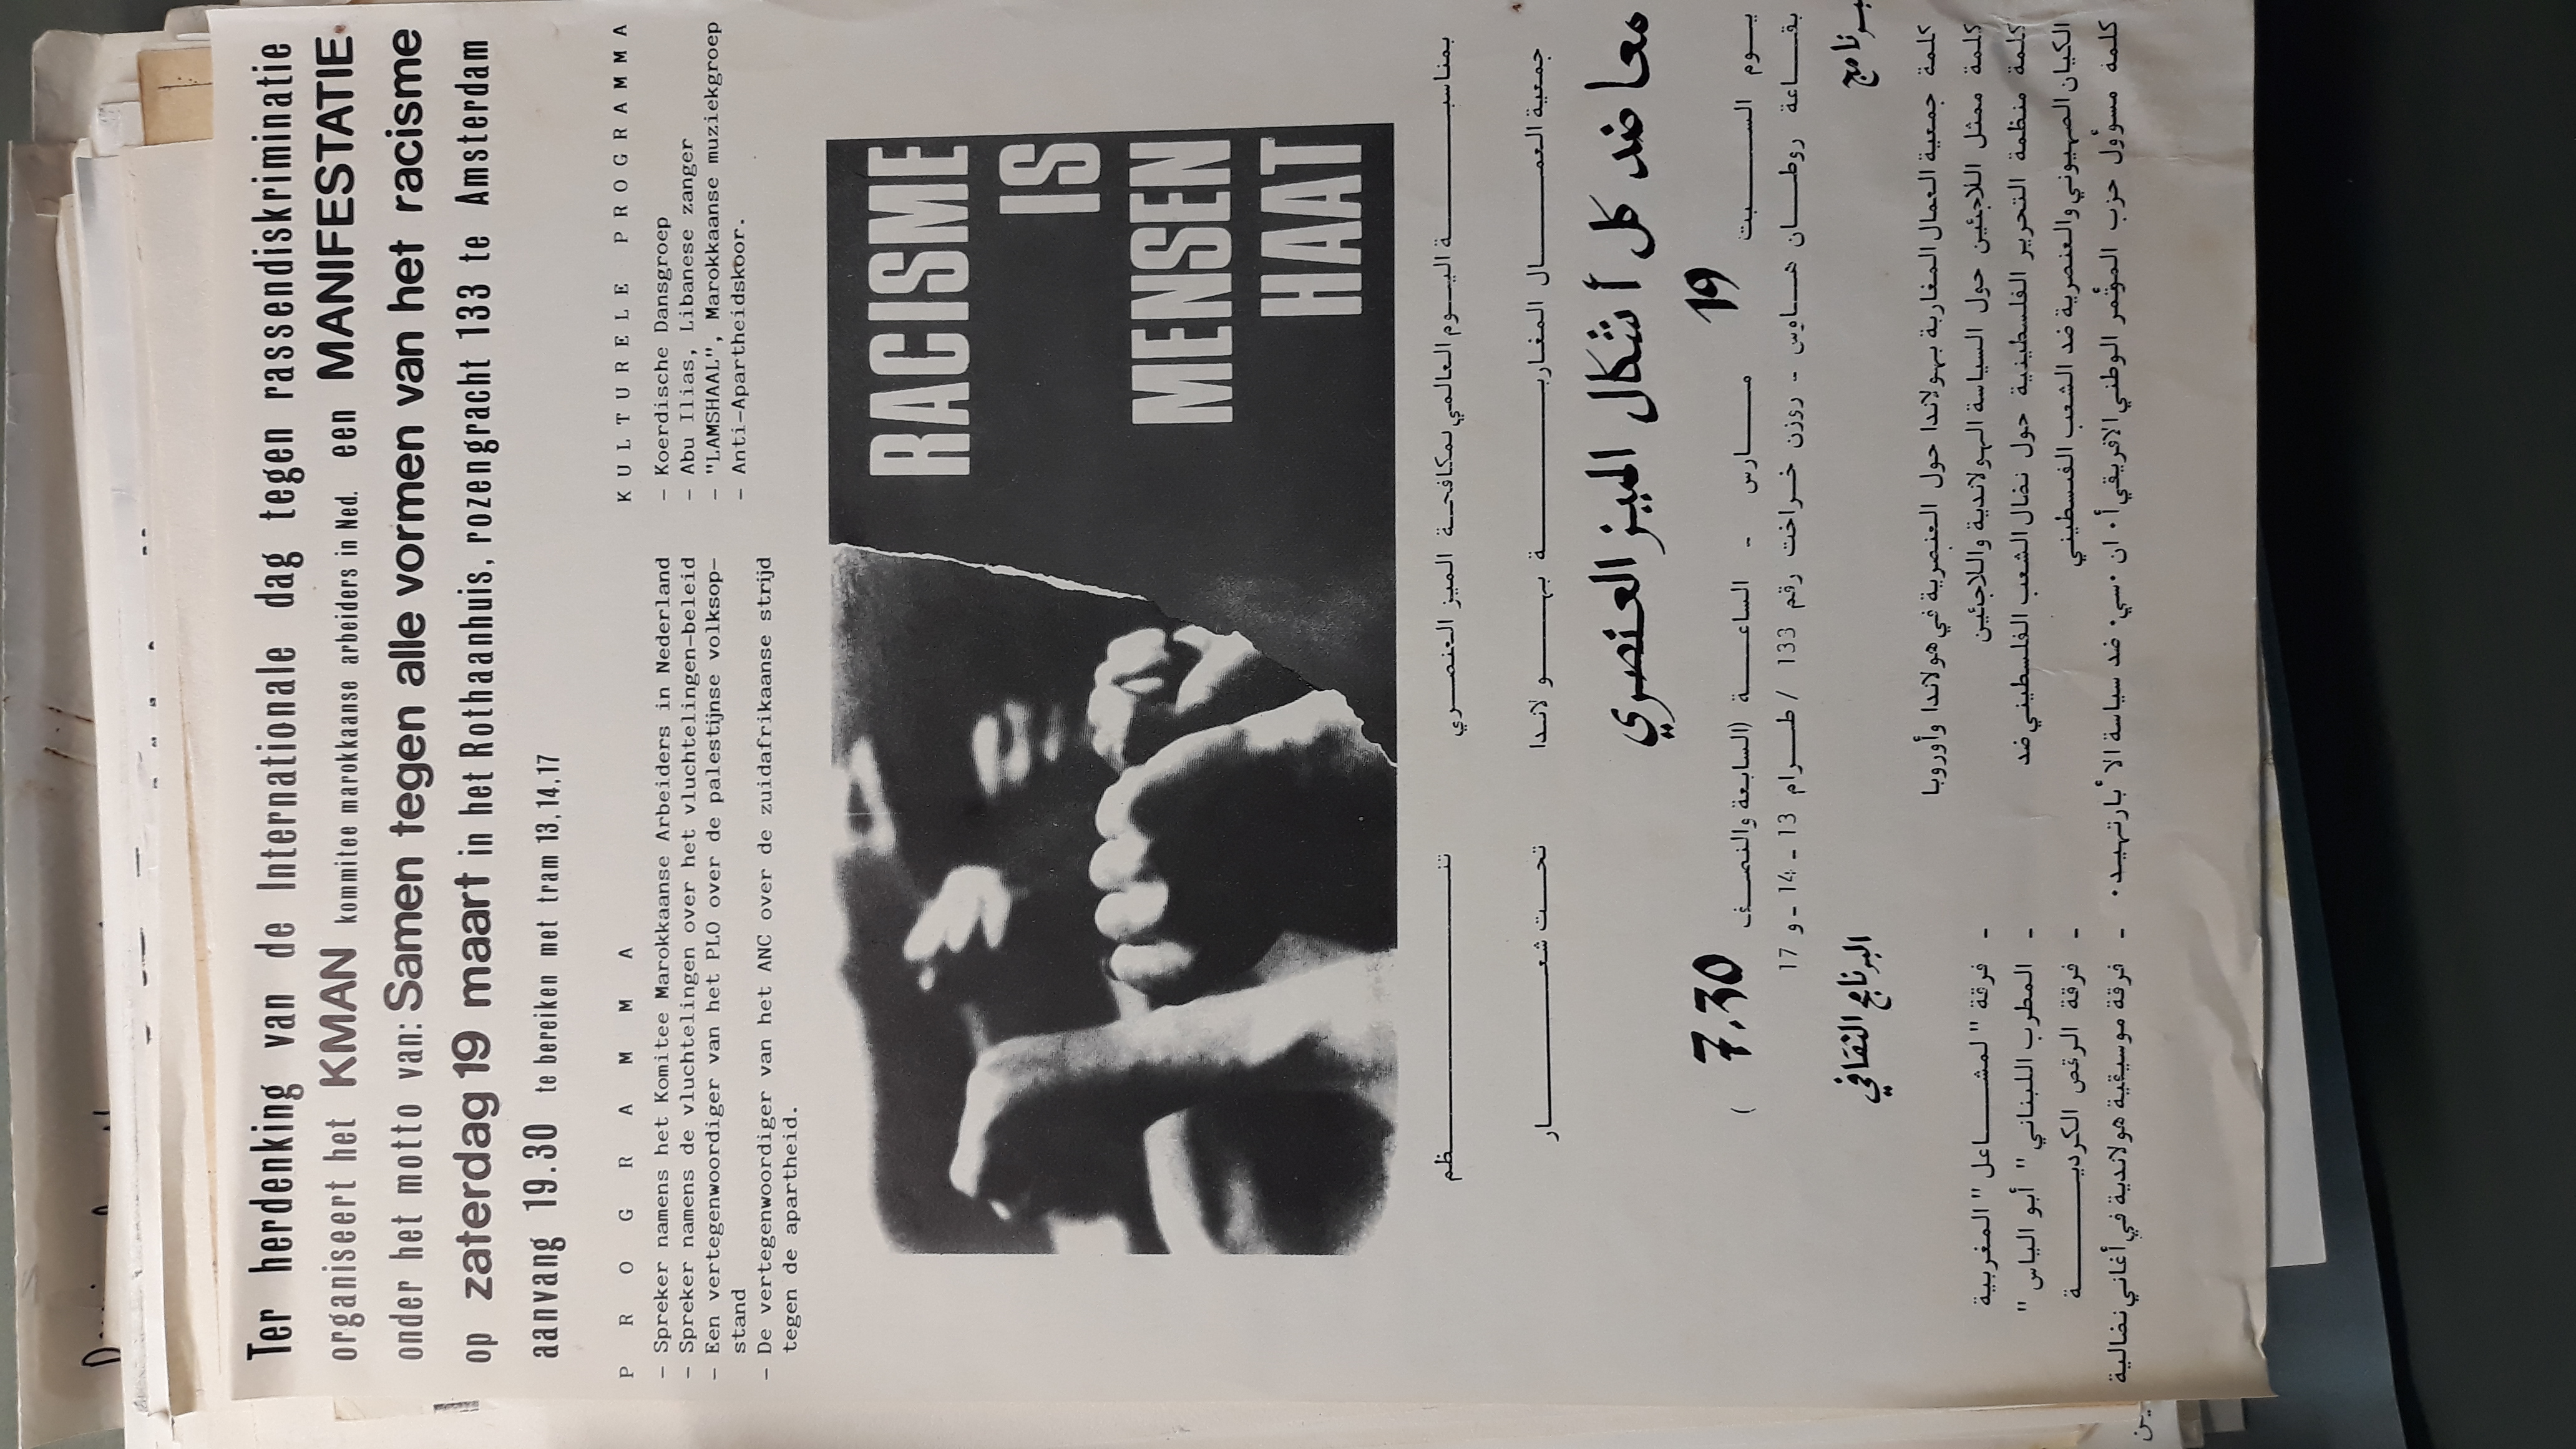 Ter herdenking van de Internationale dag tegen rassendiskriminatie
organiseert het KMAN kommitee marokkaanse arbeiders in Ned. een MANIFESTATIE.
onder het motto van: Samen tegen alle vormen van het racisme
op zaterdag 19 maart in het Rothaanhuis, rozengracht 133 te Amsterdam
aanvang 19.30 te bereiken met tram 13,14,17
P R O G R A M M A
- Spreker namens het Komitee Marokkaanse Arbeiders in Nederland
- Spreker namens de vluchtelingen over het vluchtelingen-beleid
- Een vertegenwoordiger van het PLO over de palestijnse volksop-
stand
- De vertegenwoordiger van het ANC over de zuidafrikaanse strijd
tegen de apartheid.
K U L T U R E L E P R O G R A M M A
- Koerdische Dansgroep
- Abu Ilias, Libanese zanger
- "LAMSHAAL", Marokkaanse muziekgroep
- Anti-Apartheidskoor.
RACISME
IS
MENSEN
HAAT
بمناسبة اليوم العالمي لمكافحة الميز العنصري تنظم
جمعية العمال المغاربة بهولاندا تحت شعار
معا ضد كل أشكال الميز العنصري
يوم السبت 19 مارس - الساعة (السابعة والنصف 7.30 )
بقاعة روطان هاوس - روزن خراخت رقم 133 / طرام 13 - 14 - و 17
برنامج
كلمة جمعية العمال المغاربة بهولاندا حول العنصرية في هولاندا وأوروبا
كلمة ممثل اللاجئين حول السياسة الهولاندية واللاجئين
كلمة منظمة التحرير الفلسطينية حول نضال الشعب الفلسطيني ضد
الكيان الصهيوني والعنصرية ضد الشعب الفلسطيني
كلمة مسؤول حزب المؤتمر الوطني الافريقي أ. ان .سي. ضد سياسة الا بارتهيد.
البرنامج الثقافي
- فرقة "لمشاعل" المغربية
- المطرب اللبناني " أبو الياس "
- فرقة الرقص الكردية
- فرقة موسيقية هولاندية في أغاني نضالية